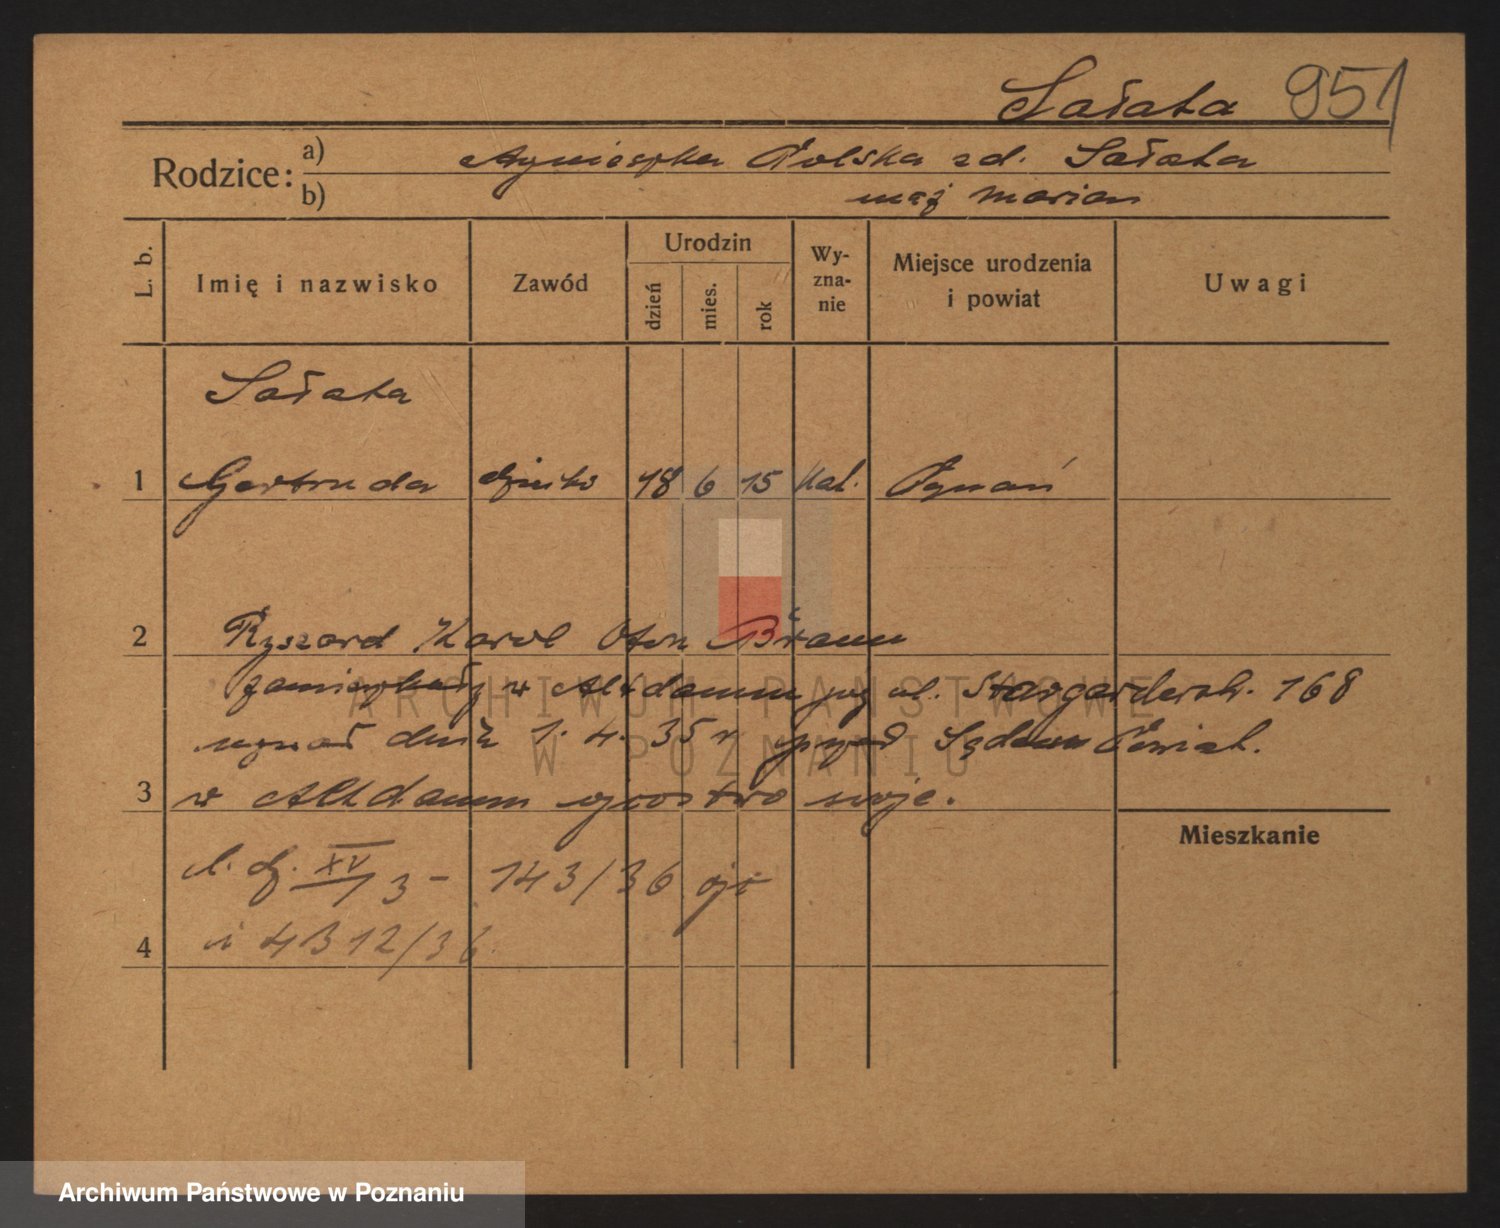 Sałata 951
Rodzice: a) Agnieszka Polska zd. Sałata
b) mąż Marian
L. b. Imię i nazwisko Zawód Urodzin dzień mies. rok Wy-zna-nie Miejsce urodzenia i powiat Uwagi
Sałata
1 Gertruda dziecko 18 6 15 kat. Poznań
2 Ryszard Karol Oton
zamieszkały w Altdamm przy ul. 168
uznał dnia 1. 4. 35 r przed Sądem Powiat.
3 w Altdamm ojcostwo swoje.
Mieszkanie
l. dz. XV/3 - 143/36
4 i 4B 12/36
ARCHIWUM PAŃSTWOWE
W POZNANIU
Archiwum Państwowe w Poznaniu